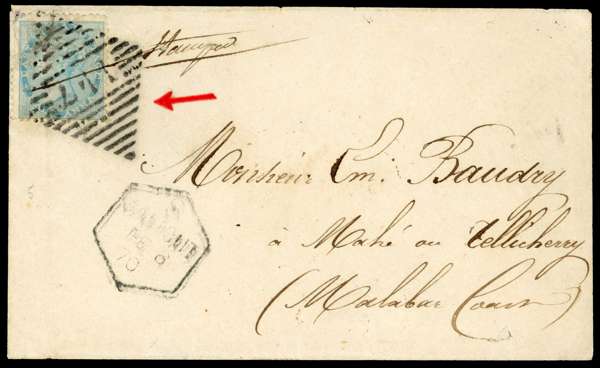 Stamped
Monsieur Em. Baudry
à Mahé ou Tellicherry
(Malabar Coast)
70